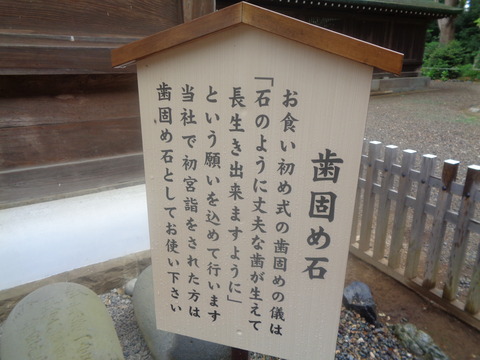 歯固め石
お食い初め式の歯固めの儀は
「石のように丈夫な歯が生えて
長生き出来ますように」
という願いを込めて行います
当社で初宮詣をされた方は
歯固め石としてお使い下さい